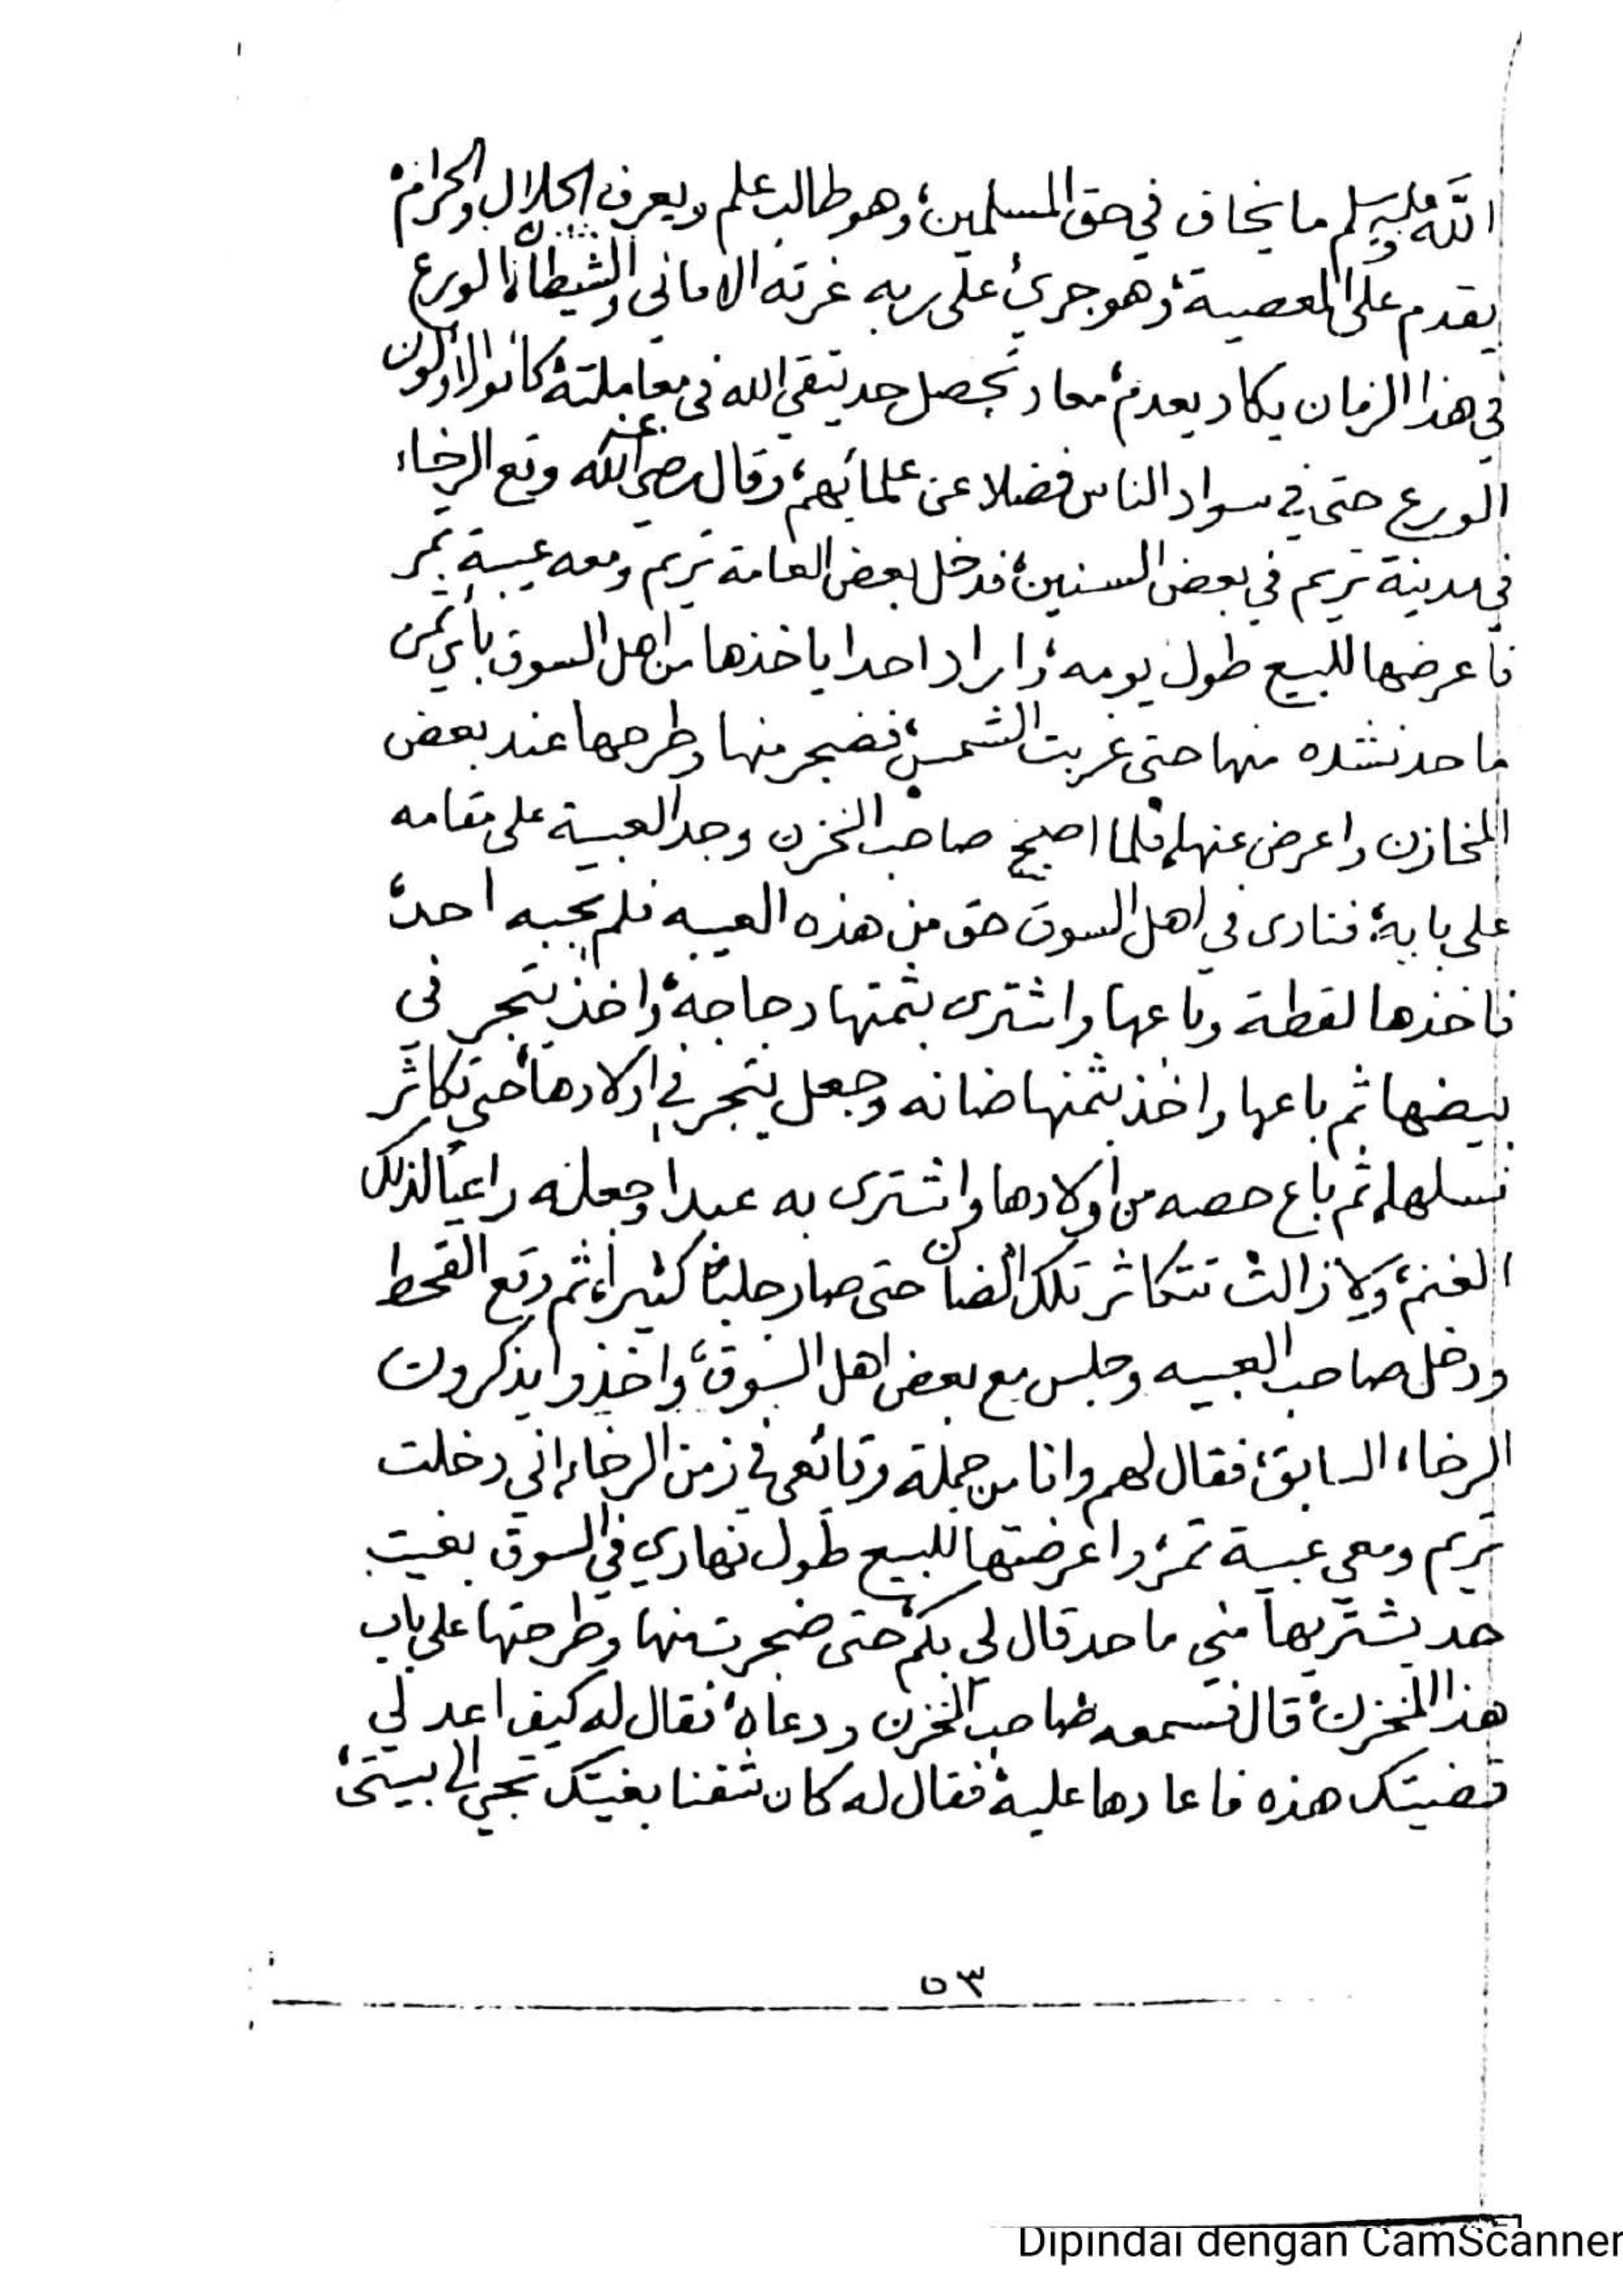 الله عليه وسلم ما يخاف في حق المسلمين، وهو طالب علم ويعرف الحلال والحرام،
يقدم على المعصية، وهو جريء على ربه غرته الاماني والشيطان، الورع
في هذا الزمان يكاد يعدم، معاد تحصل حد يتقي الله في معاملته، كانوا الاولون
الورع حتى في سواد الناس فضلا عن علمائهم، وقال رضي الله عنه وقع الرخاء
في مدينة تريم في بعض السنين، فدخل بعض العامة تريم ومعه عيبة تمر
فاعرضها للبيع طول يومه، واراد احدا ياخذها من اهل السوق بأي ثمن
ما حد نشده منها حتى غربت الشمس، فضجر منها وطرحها عند بعض
المخازن واعرض عنها، فلما اصبح صاحب المخزن وجد العيبة على مقامه
على بابه، فنادى في اهل السوق حق من هذه العيبه فلم يجبه احد،
فاخذها لقطة وباعها واشترى بثمنها دجاجه، واخذ يتجر في
بيضها ثم باعها واخذ بثمنها ضانه وجعل يتجر في اولادها، حتى تكاثر
نسلها، ثم باع حصه من اولادها واشترى به عبدا وجعله راعيا لذلك
الغنم، ولا زالت تتكاثر تلك الضان حتى صار حلباً كثيراً، ثم وقع القحط
ودخل صاحب العيبه وجلس مع بعض اهل السوق، واخذوا يذكرون
الرخاء السابق، فقال لهم وانا من جملة وقائعي في زمن الرخاء، اني دخلت
تريم ومعي عيبة تمر، واعرضتها للبيع طول نهاري في السوق بغيت
حد يشتريها مني ما حد قال لي بكم، حتى ضجرت منها وطرحتها على باب
هذا المخزن، قال فسمعه صاحب المخزن ودعاه، فقال له كيف اعد لي
قضيتك هذه فاعادها عليه، فقال له كان شفنا بغيتك تجي الى بيتي،
٥٣
Dipindai dengan CamScanner